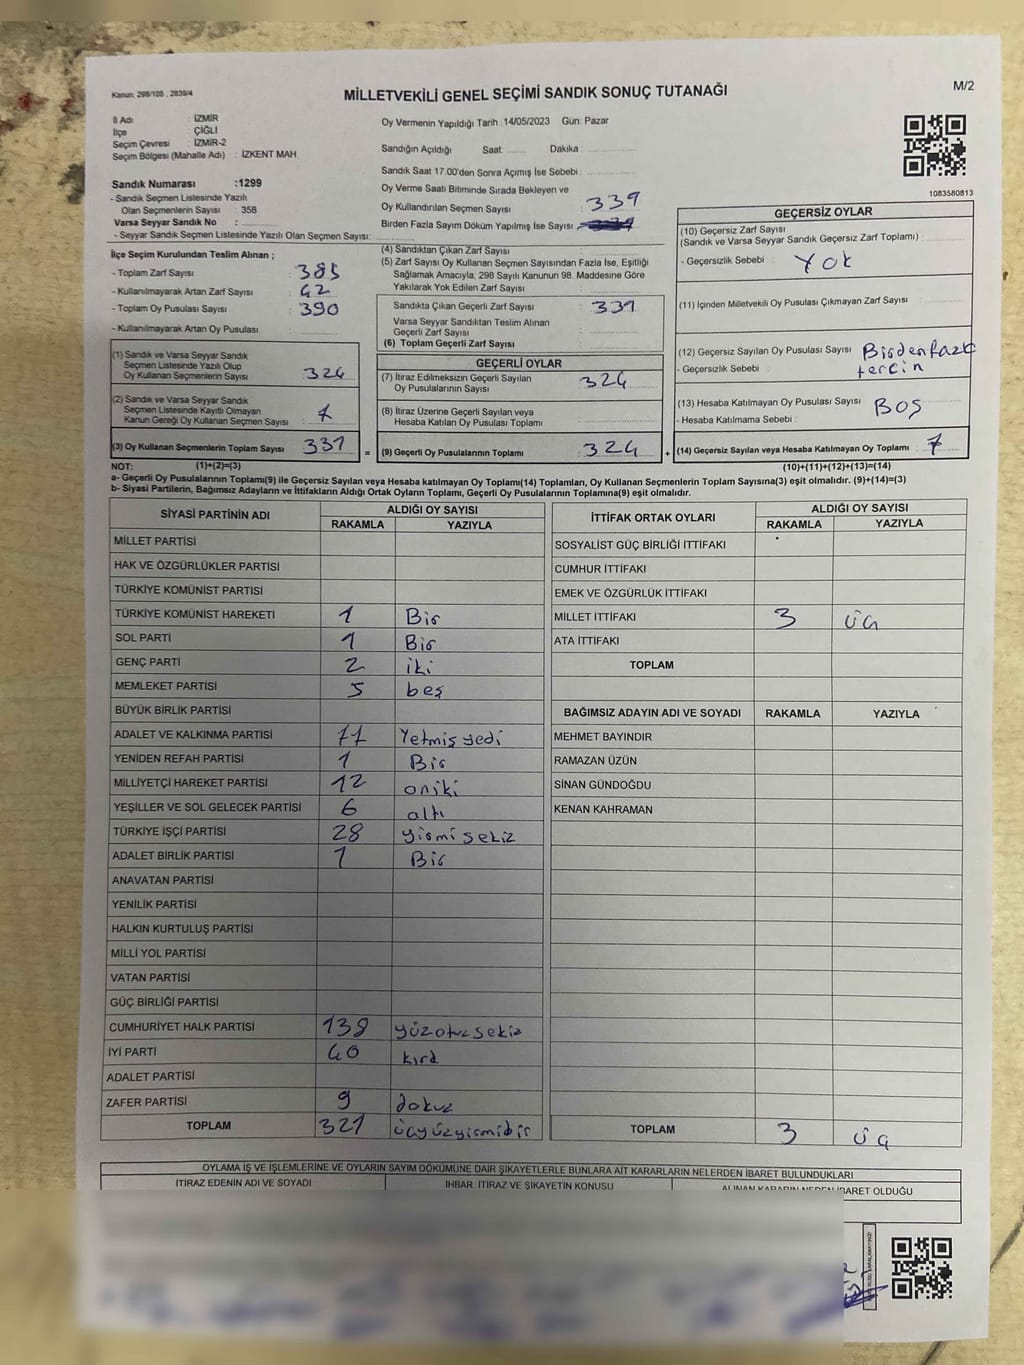 Kanun; 298/105 , 2839/4
MİLLETVEKİLİ GENEL SEÇİMİ SANDIK SONUÇ TUTANAĞI
M/2
İl Adı : İZMİR
İlçe : ÇİĞLİ
Seçim Çevresi : İZMİR-2
Seçim Bölgesi (Mahalle Adı) : İZKENT MAH
Sandık Numarası :1299
- Sandık Seçmen Listesinde Yazılı
Olan Seçmenlerin Sayısı : 358
Varsa Seyyar Sandık No :
- Seyyar Sandık Seçmen Listesinde Yazılı Olan Seçmen Sayısı:
Oy Vermenin Yapıldığı Tarih 14/05/2023 Gün: Pazar
Sandığın Açıldığı Saat Dakika :
Sandık Saat 17.00'den Sonra Açımış İse Sebebi :
Oy Verme Saati Bitiminde Sırada Bekleyen ve
Oy Kullandırılan Seçmen Sayısı : 339
Birden Fazla Sayım Döküm Yapılmış İse Sayısı
1083580813
İlçe Seçim Kurulundan Teslim Alınan ;
- Toplam Zarf Sayısı : 385
- Kullanılmayarak Artan Zarf Sayısı : 42
- Toplam Oy Pusulası Sayısı : 390
- Kullanılmayarak Artan Oy Pusulası :
(1) Sandık ve Varsa Seyyar Sandık
Seçmen Listesinde Yazılı Olup
Oy Kullanan Seçmenlerin Sayısı 324
(2) Sandık ve Varsa Seyyar Sandık
Seçmen Listesinde Kayıtlı Olmayan
Kanun Gereği Oy Kullanan Seçmen Sayısı 7
(3) Oy Kullanan Seçmenlerin Toplam Sayısı 331
(4) Sandıktan Çıkan Zarf Sayısı :
(5) Zarf Sayısı Oy Kullanan Seçmen Sayısından Fazla İse, Eşitliği
Sağlamak Amacıyla, 298 Sayılı Kanunun 98. Maddesine Göre
Yakılarak Yok Edilen Zarf Sayısı :
Sandıkta Çıkan Geçerli Zarf Sayısı : 331
Varsa Seyyar Sandıktan Teslim Alınan
Geçerli Zarf Sayısı :
(6) Toplam Geçerli Zarf Sayısı :
GEÇERLİ OYLAR
(7) İtiraz Edilmeksizin Geçerli Sayılan
Oy Pusulalarının Sayısı : 324
(8) İtiraz Üzerine Geçerli Sayılan veya
Hesaba Katılan Oy Pusulası Toplamı :
= (9) Geçerli Oy Pusulalarının Toplamı : 324
GEÇERSİZ OYLAR
(10) Geçersiz Zarf Sayısı
(Sandık ve Varsa Seyyar Sandık Geçersiz Zarf Toplamı) :
- Geçersizlik Sebebi : Yok
(11) İçinden Milletvekili Oy Pusulası Çıkmayan Zarf Sayısı :
(12) Geçersiz Sayılan Oy Pusulası Sayısı Birden fazla
- Geçersizlik Sebebi : tercin
(13) Hesaba Katılmayan Oy Pusulası Sayısı BOŞ
- Hesaba Katılmama Sebebi :
+ (14) Geçersiz Sayılan veya Hesaba Katılmayan Oy Toplamı : 7
NOT: (1)+(2)=(3)
(10)+(11)+(12)+(13)=(14)
a- Geçerli Oy Pusulasının Toplamı(9) ile Geçersiz Sayılan veya Hesaba katılmayan Oy Toplamı(14) Toplamları, Oy Kullanan Seçmenlerin Toplam Sayısına(3) eşit olmalıdır. (9)+(14)=(3)
b- Siyasi Partilerin, Bağımsız Adayların ve İttifakların Aldığı Ortak Oyların Toplamı, Geçerli Oy Pusulalarının Toplamına(9) eşit olmalıdır.
SİYASİ PARTİNİN ADI ALDIĞI OY SAYISI
RAKAMLA YAZIYLA
MİLLET PARTİSİ
HAK VE ÖZGÜRLÜKLER PARTİSİ
TÜRKİYE KOMÜNİST PARTİSİ
TÜRKİYE KOMÜNİST HAREKETİ 1 Bir
SOL PARTİ 1 Bir
GENÇ PARTİ 2 iki
MEMLEKET PARTİSİ 5 beş
BÜYÜK BİRLİK PARTİSİ
ADALET VE KALKINMA PARTİSİ 77 Yetmiş yedi
YENİDEN REFAH PARTİSİ 1 Bir
MİLLİYETÇİ HAREKET PARTİSİ 12 oniki
YEŞİLLER VE SOL GELECEK PARTİSİ 6 altı
TÜRKİYE İŞÇİ PARTİSİ 28 yirmi sekiz
ADALET BİRLİK PARTİSİ 1 Bir
ANAVATAN PARTİSİ
YENİLİK PARTİSİ
HALKIN KURTULUŞ PARTİSİ
MİLLİ YOL PARTİSİ
VATAN PARTİSİ
GÜÇ BİRLİĞİ PARTİSİ
CUMHURİYET HALK PARTİSİ 138 yüzotuzsekiz
İYİ PARTİ 40 kırd
ADALET PARTİSİ
ZAFER PARTİSİ 9 dokuz
TOPLAM 321 üçyüzyirmibir
İTTİFAK ORTAK OYLARI ALDIĞI OY SAYISI
RAKAMLA YAZIYLA
SOSYALİST GÜÇ BİRLİĞİ İTTİFAKI
CUMHUR İTTİFAKI
EMEK VE ÖZGÜRLÜK İTTİFAKI
MİLLET İTTİFAKI 3 üç
ATA İTTİFAKI
TOPLAM
BAĞIMSIZ ADAYIN ADI VE SOYADI RAKAMLA YAZIYLA
MEHMET BAYINDIR
RAMAZAN ÜZÜN
SİNAN GÜNDOĞDU
KENAN KAHRAMAN
TOPLAM 3 üç
OYLAMA İŞ VE İŞLEMLERİNE VE OYLARIN SAYIM DÖKÜMÜNE DAİR ŞİKAYETLERLE BUNLARA AİT KARARLARIN NELERDEN İBARET BULUNDUKLARI
İTİRAZ EDENİN ADI VE SOYADI İHBAR, İTİRAZ VE ŞİKAYETİN KONUSU ALINAN KARARIN NEDEN İBARET OLDUĞU